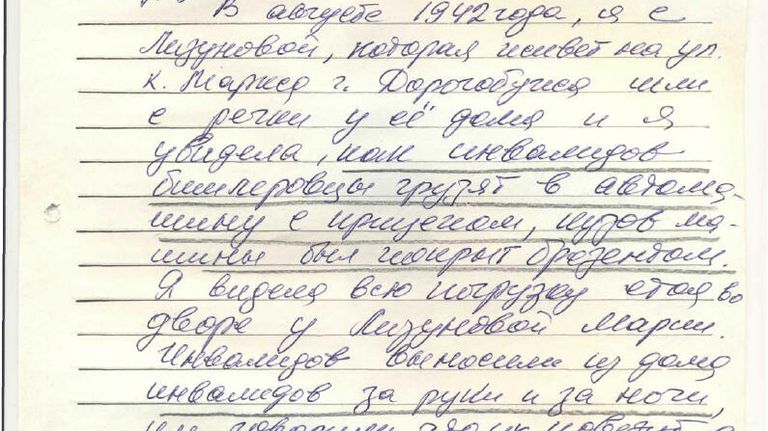 В августе 1942 года, я с
Лизуновой, которая живет на ул.
К. Маркса г. Дорогобужа шли
с речки у её дома и я
увидела, как инвалидов
гитлеровцы грузят в автома-
шину с прицепом, кузов ма-
шины был покрыт брозентом.
Я видела всю погрузку стоя во
дворе у Лизуновой Марии.
Инвалидов выносили из дома
инвалидов за руки и за ноги,